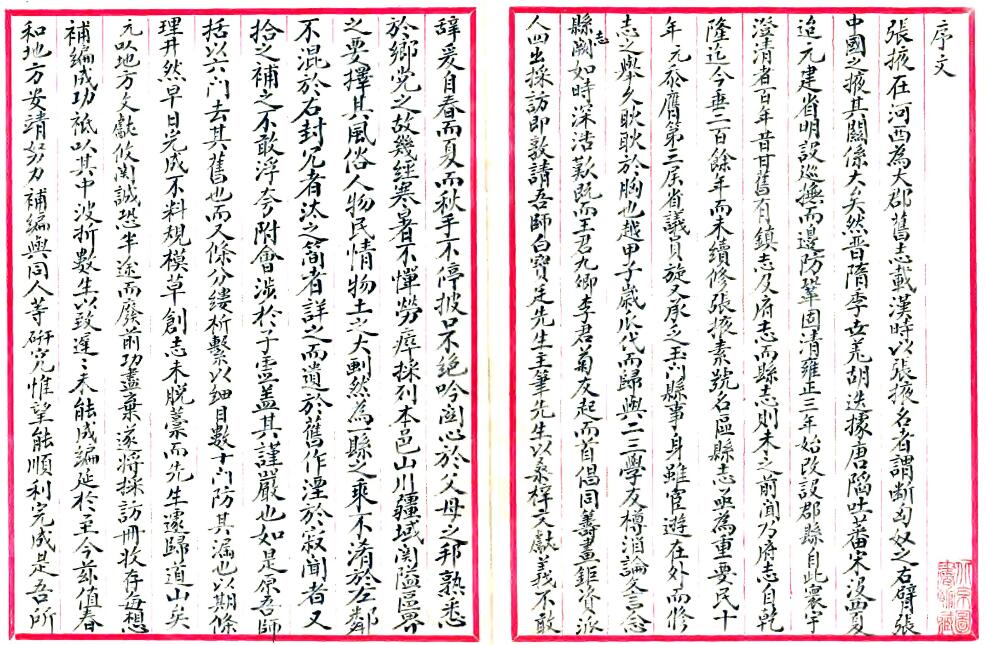 序文
張掖在河西為大郡舊志載漢時以張掖名者謂斷匈奴之右臂張
中國之掖其關係大矣然晋隋季世羌胡迭據唐陷吐蕃宋没西夏
迨元建省明設巡撫而邊防鞏固清雍正三年始改設郡縣自此寰宇
澄清者百年昔甘舊有鎮志及府志而縣志則未之前聞乃府志自乾
隆迄今垂二百餘年而未續修張掖素號名區縣志亟為重要民十
年元泰膺第三屆省議員旋又承乏玉門縣事身雖宦遊在外而修
志之舉久耿耿於胸也越甲子歲瓜代而歸與二三學友樽酒論文言念
縣志闕如時深浩歎既而王君九卿李君菊友起而首倡同籌畫鉅資派
人四出採訪即敦請吾師白寶延先生主筆先生以桑梓文獻義不敢
辞爰自春而夏而秋手不停披口不絕吟關心於父母之邦熟悉
於鄉党之故幾經寒暑不憚勞瘁採列本邑山川疆域關隘區界
之要擇其風俗人物民情物土之大劃然為一縣之乘不淆於左鄰
不混於右封冗者汰之簡者詳之而遺於舊作湮於寂聞者又
拾之補之不敢浮夸附會涉於子虛蓋其謹嚴也如是原吾師
括以六门去其舊也而又條分縷析繫以細目數十门防其漏也以期條
理井然早日完成不料規模草創志未脱藁而先生遽歸道山矣
元以地方文獻攸関誠恐半途而廢前功盡棄遂將採訪冊收存每想
補編成功祇以其中波折叢生以致遲遲未能成編延於至今茲值春
和地方安靖努力補編與同人等研究惟望能順利完成是吾所